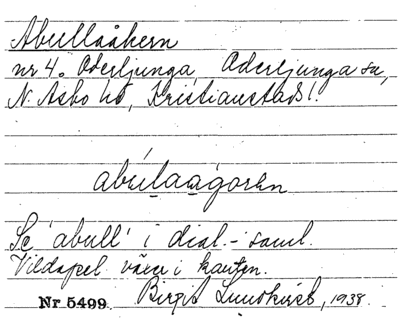 Abullaåkern
nr 4. Oderljunga, Oderljunga sn,
N. Åsbo hd, Kristianstads l.
abulaagoren
Se 'abull' i dial.-saml.
Vildapel växer i kanten.
Nr 5499 Birgit Lundkvist, 1938.